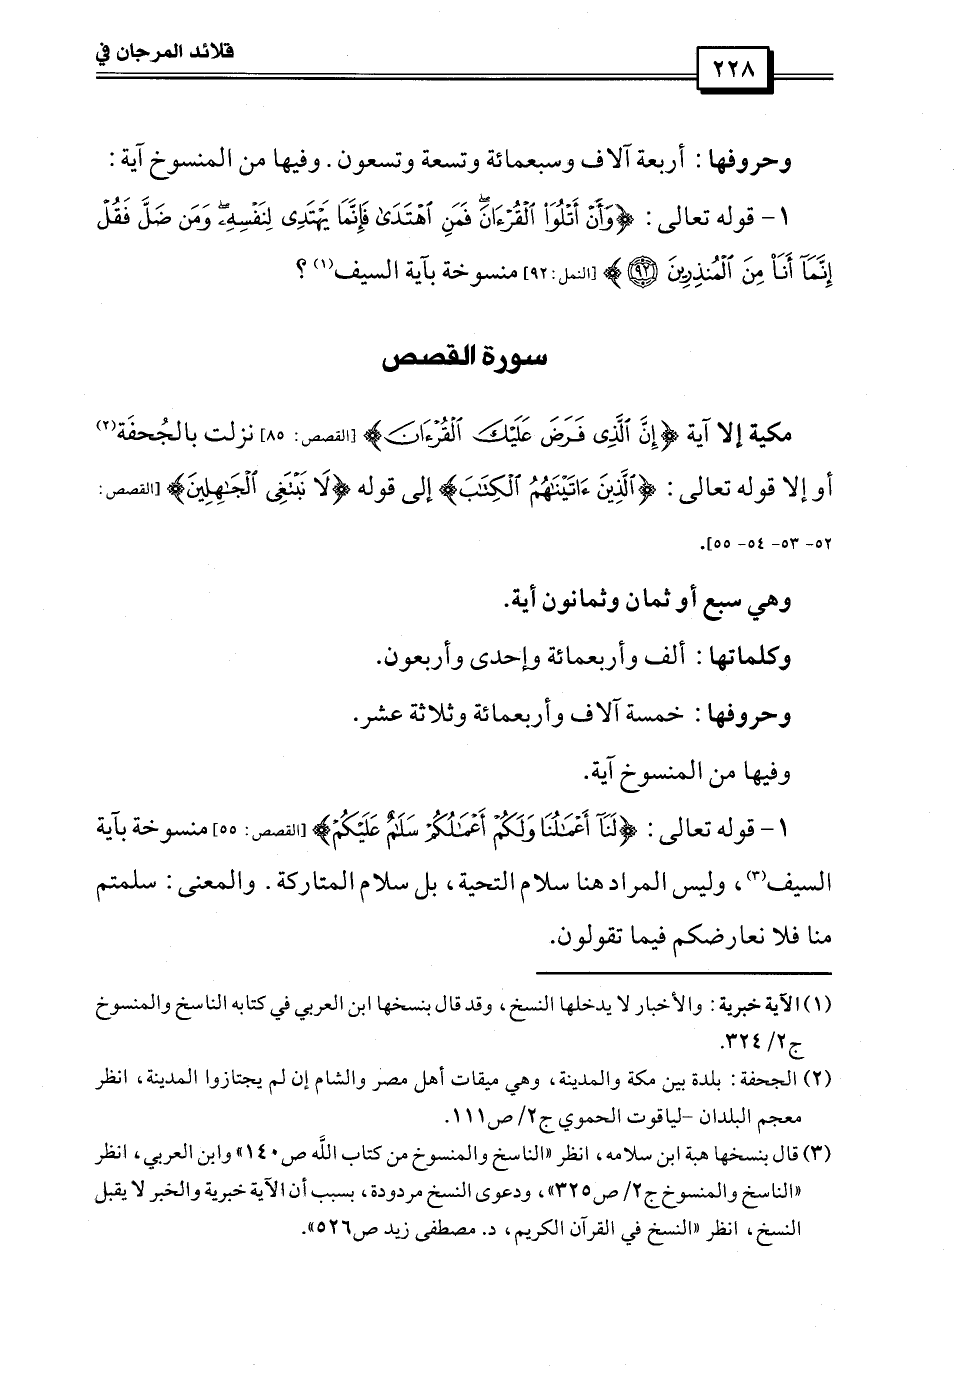 قلائد المرجان في
٢٢٨
وحروفها : أربعة آلاف وسبعمائة وتسعة وتسعون . وفيها من المنسوخ آية :
١- قوله تعالى : ﴿وَأَنْ أَتْلُوَا۟ ٱلْقُرْءَانَ ۖ فَمَنِ ٱهْتَدَىٰ فَإِنَّمَا يَهْتَدِى لِنَفْسِهِۦ ۖ وَمَن ضَلَّ فَقُلْ
إِنَّمَآ أَنَا۠ مِنَ ٱلْمُنذِرِينَ ٩٢﴾ [النمل: ٩٢] منسوخة بآية السيف(١) ؟
سورة القصص
مكية إلا آية ﴿إِنَّ ٱلَّذِى فَرَضَ عَلَيْكَ ٱلْقُرْءَانَ﴾ [القصص: ٨٥] نزلت بالجُحفَة(٢)
أو إلا قوله تعالى : ﴿ٱلَّذِينَ ءَاتَيْنَٰهُمُ ٱلْكِتَٰبَ﴾ إلى قوله ﴿لَا نَبْتَغِى ٱلْجَٰهِلِينَ﴾ [القصص:
٥٢- ٥٣- ٥٤- ٥٥].
وهي سبع أو ثمان وثمانون أية.
وكلماتها : ألف وأربعمائة وإحدى وأربعون.
وحروفها : خمسة آلاف وأربعمائة وثلاثة عشر.
وفيها من المنسوخ آية.
١- قوله تعالى : ﴿لَنَآ أَعْمَٰلُنَا وَلَكُمْ أَعْمَٰلُكُمْ سَلَٰمٌ عَلَيْكُمْ﴾ [القصص: ٥٥] منسوخة بآية
السيف(٣) ، وليس المراد هنا سلام التحية ، بل سلام المتاركة . والمعنى : سلمتم
منا فلا نعارضكم فيما تقولون.
(١) الآية خبرية : والأخبار لا يدخلها النسخ ، وقد قال بنسخها ابن العربي في كتابه الناسخ والمنسوخ
ج٢/ ٣٢٤.
(٢) الجحفة : بلدة بين مكة والمدينة ، وهي ميقات أهل مصر والشام إن لم يجتازوا المدينة ، انظر
معجم البلدان -لياقوت الحموي ج٢/ ص١١١.
(٣) قال بنسخها هبة ابن سلامه ، انظر «الناسخ والمنسوخ من كتاب اللَّه ص١٤٠» وابن العربي ، انظر
«الناسخ والمنسوخ ج٢/ ص٣٢٥» ، ودعوى النسخ مردودة ، بسبب أن الآية خبرية والخبر لا يقبل
النسخ ، انظر «النسخ في القرآن الكريم ، د. مصطفى زيد ص٥٢٦».